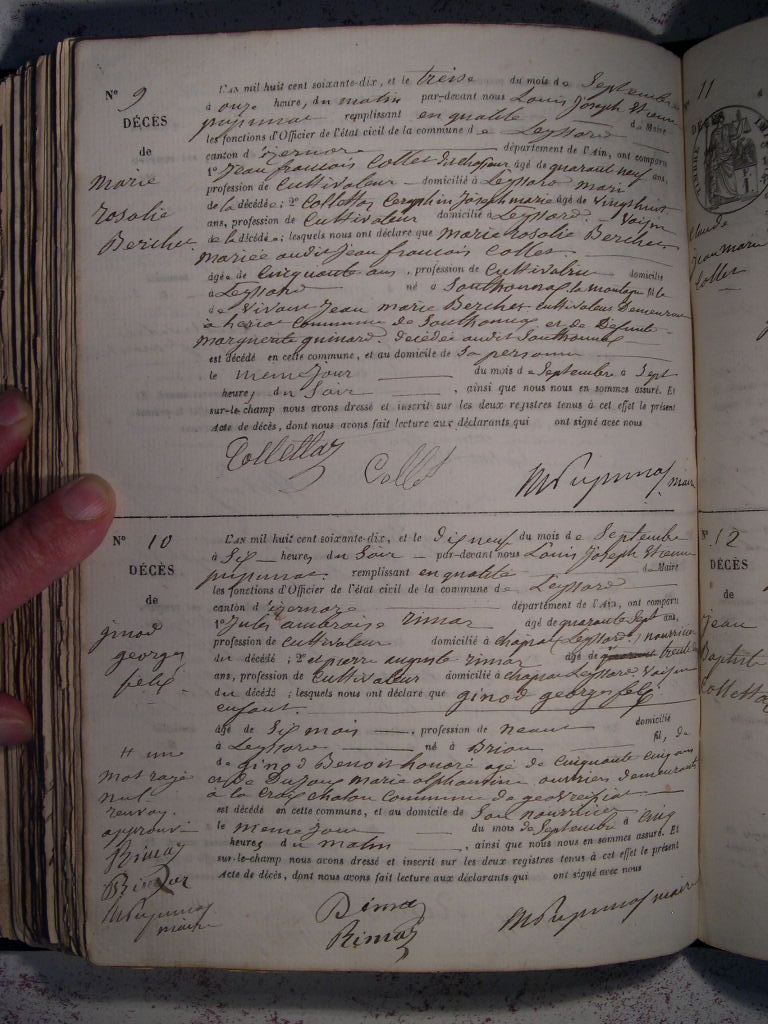 N° 9
DÉCÈS
de
marie
rosalie
Berchet
L'AN mil huit cent soixante-dix, et le treise du mois de Septembre
à onze heure, du matin par-devant nous Louis Joseph Etienne
remplissant en qualité de Maire
les fonctions d'Officier de l'état civil de la commune de Leyssard
canton d'izernore département de l'Ain, ont comparu
1° Jean francois Collet âgé de quarante neuf ans,
profession de Cultivateur domicilié à Leyssard mari
de la décédée; 2° Collettaz Joseph marie âgé de vingt huit
ans, profession de Cultivateur domicilié à Leyssard. Voisin
de la décédée; lesquels nous ont déclaré que marie rosalie Berchet
mariée audit Jean francois Collet.
âgée de Cinquante ans, profession de Cultivatrice domicilié
à Leyssard né à Southonnas la montagne fille
de Vivant Jean marie Berchet Cultivateur Demeurant
à heriat Commune de Southonnas et de Défunte
marguerite guinard. décédée audit Southonnas
est décédé en cette commune, et au domicile de Sa personne
le meme Jour du mois de Septembre à Sept
heures du Soir, ainsi que nous nous en sommes assuré. Et
sur-le-champ nous avons dressé et inscrit sur les deux registres tenus à cet effet le présent
Acte de décès, dont nous avons fait lecture aux déclarants qui ont signé avec nous
Collettaz Collet maire
N° 10
DÉCÈS
de
ginod
georges
félix
L'AN mil huit cent soixante-dix, et le dix neuf du mois de Septembre
à Six heures du Soir par-devant nous Louis Joseph Etienne
remplissant en qualité de Maire
les fonctions d'Officier de l'état civil de la commune de Leyssard
canton d'izernore département de l'Ain, ont comparu
1° Jules ambroise rimaz âgé de quarante Sept ans,
profession de Cultivateur domicilié à (Leyssard) nourricier
du décédé; 2° et pierre auguste rimaz âgé de trente
ans, profession de Cultivateur domicilié à Leyssard. Voisin
du décédé; lesquels nous ont déclaré que ginod georges felix
enfant.
âgé de Six mois, profession de neant domicilié
à Leyssard né à Brion fils, de
de ginod Benoit honoré agé de Cinquante Cinq ans
et de Dujoux marie alphantine ouvriers demeurants
à la Croix Chalon Commune de geovreissiat
est décédé en cette commune, et au domicile de Son nourricier
le meme Jour du mois de Septembre à Cinq
heures du matin, ainsi que nous nous en sommes assuré. Et
sur-le-champ nous avons dressé et inscrit sur les deux registres tenus à cet effet le présent
Acte de décès, dont nous avons fait lecture aux déclarants qui ont signé avec nous
une
mot rayé
nul
renvoy.
approuvé
Rimaz
Rimaz
maire
Rimaz
Rimaz
maire
11
Claude
Jean marie
Collet
N° 12
DÉCÈS
de
Jean
Baptiste
Collettaz